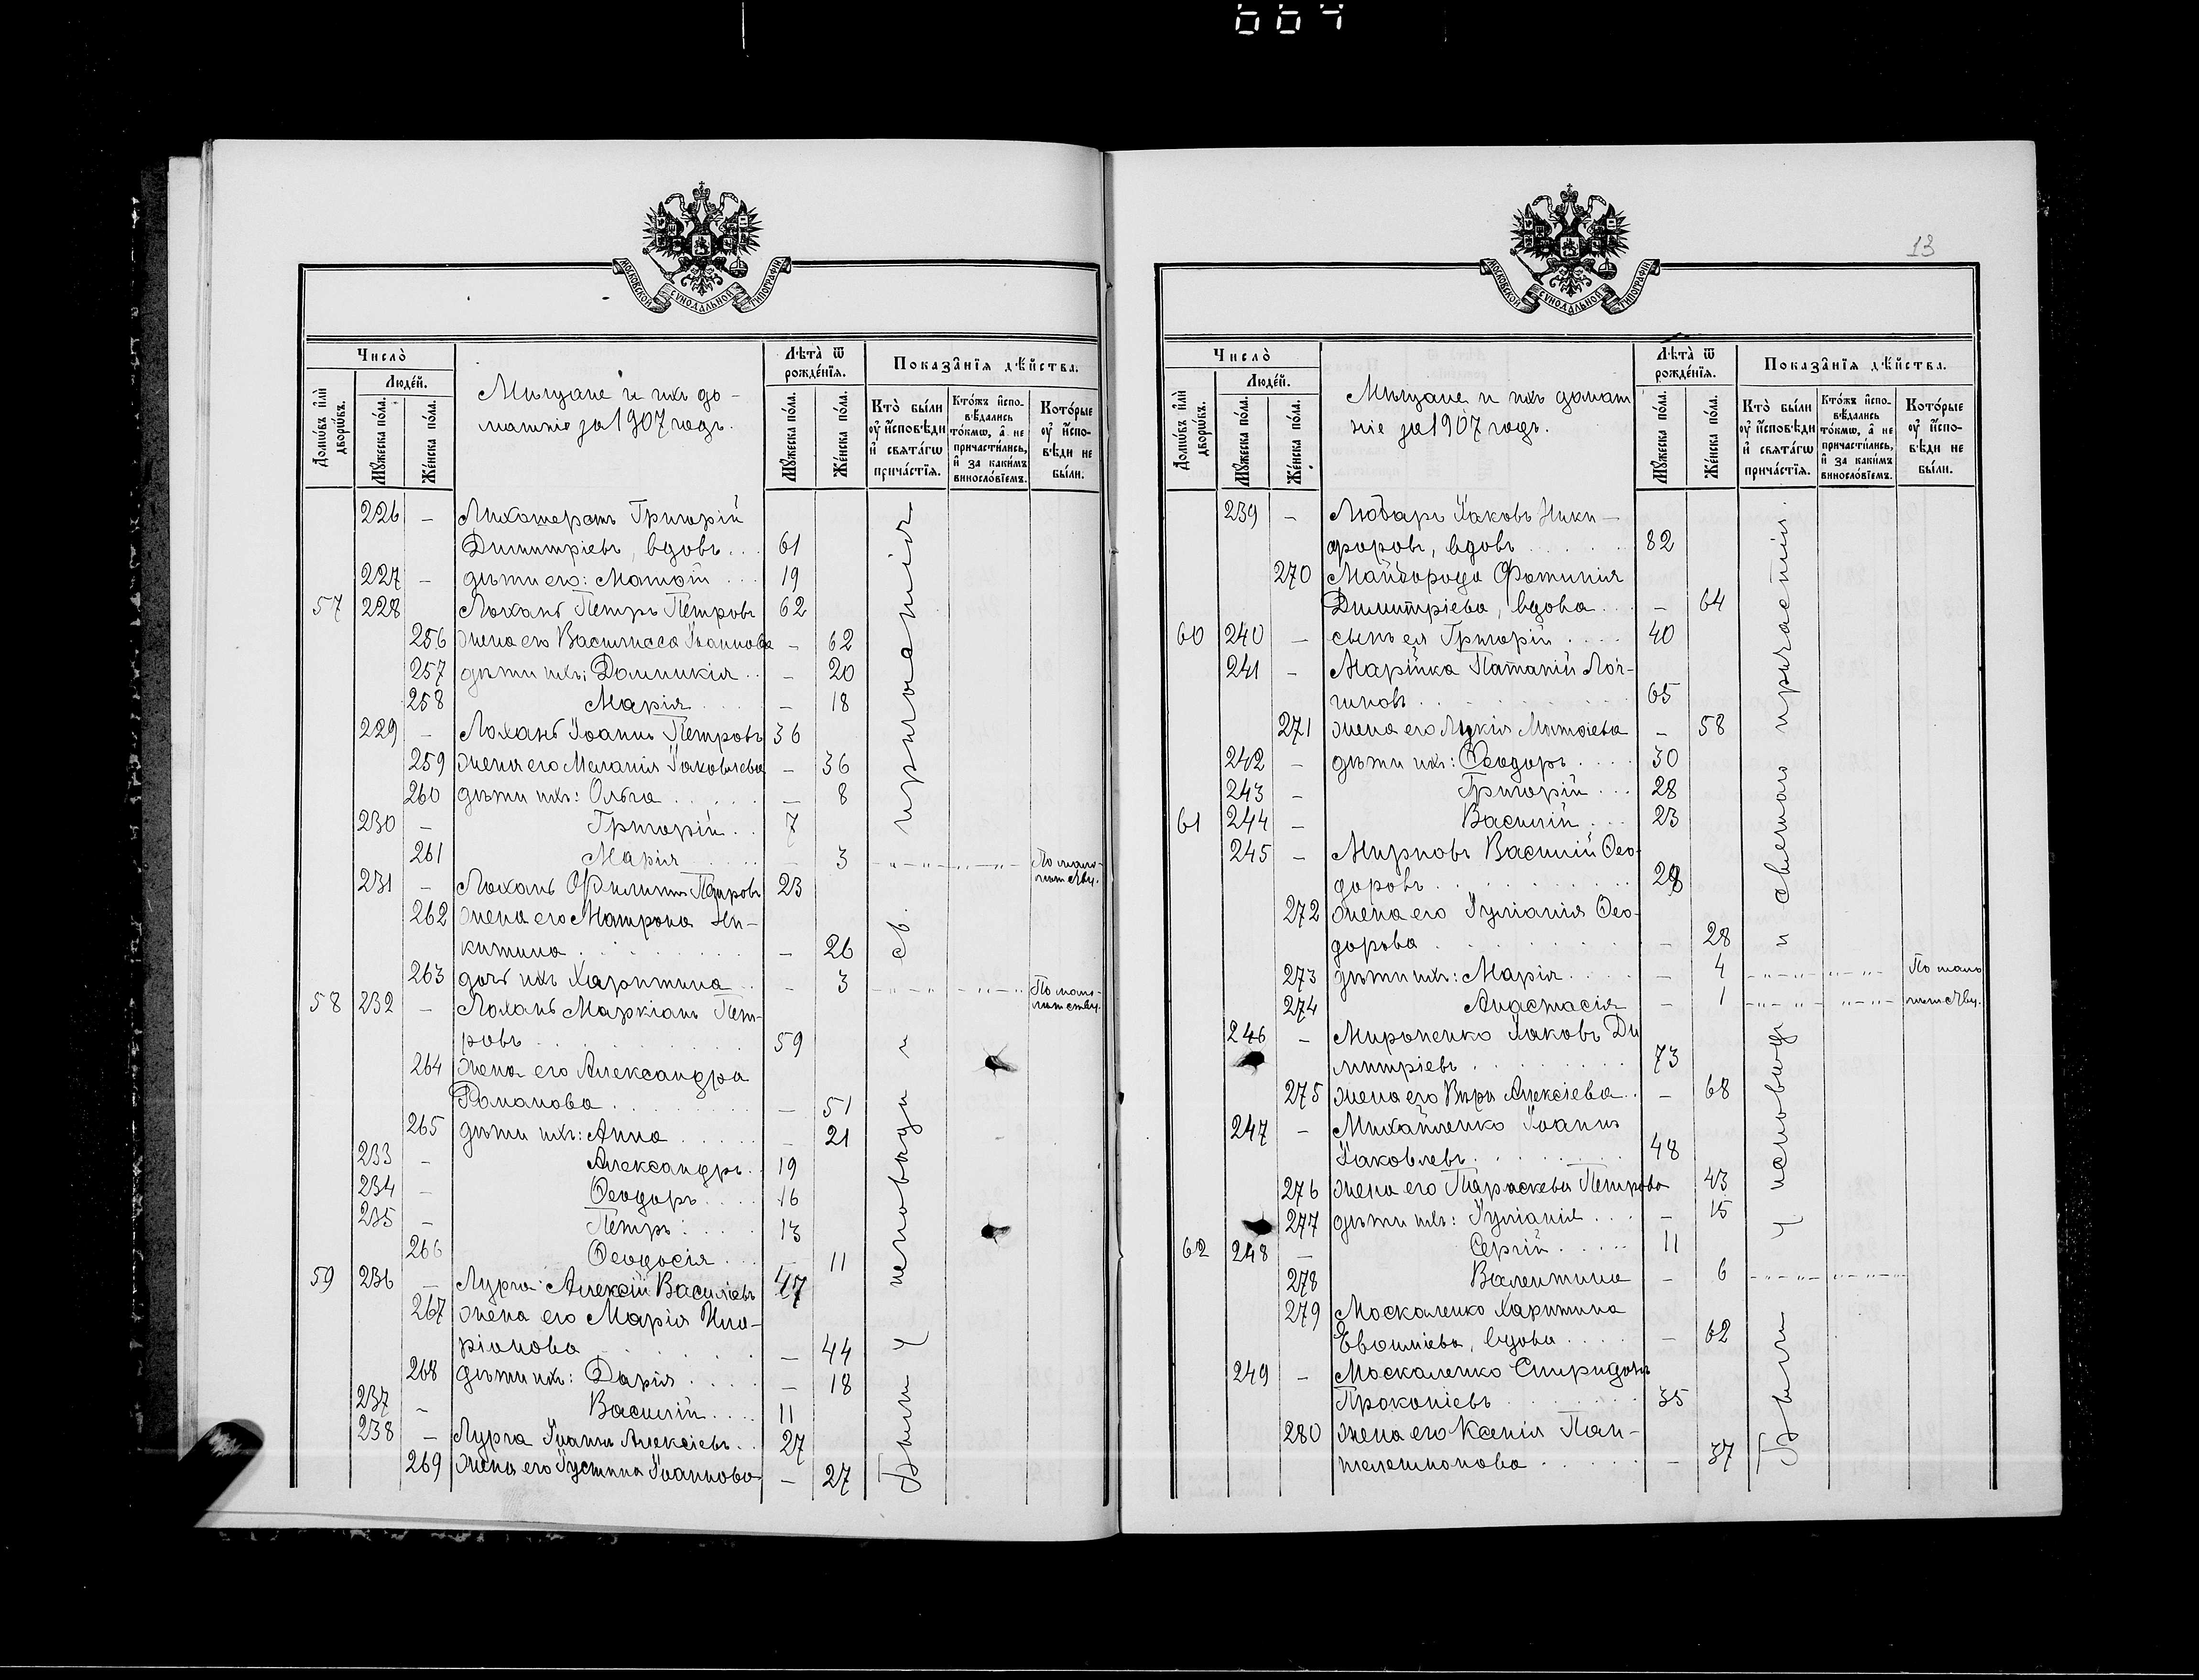 667
МОСКОВСКОЙ СѴНОДАЛЬНОЙ ТИПОГРАФІИ
Число̀
Людéй.
Домѡ́въ и҆лѝ дворѡ́въ.
Мꙋ́жеска по́ла.
Же́нска по́ла.
Мѣщане и ихъ до-
машніе за 1907 годъ.
Лѣта̀ ѿ рожде́нїѧ.
Мꙋ́жеска по́ла.
Же́нска по́ла.
Показа̑нїѧ дѣ́йства.
Кто̀ бы́ли ᲂу҆ и҆сповѣ́ди и҆ свѧта́гѡ прича́стїѧ.
Кто́жъ и҆сповѣ́дались то́кмѡ, а҆ не причасти́лись, и҆ за каки́мъ винослóвїемъ.
Кото́рые ᲂу҆ и҆сповѣ́ди не бы́ли.
226 – Лихошерстъ Григорій
Димитріевъ, вдовъ... 61
227 – дѣти его: Матѳій ... 19
57 228 Лохань Петръ Петровъ 62
256 жена его Василисса Іоаннова – 62
257 дѣти ихъ: Домникія .. – 20
258 Марія ... – 18
229 – Лохань Іоаннъ Петровъ 36
259 жена его Меланія Іаковлева – 36
260 дѣти ихъ: Ольга ..... – 8
230 – Григорій .. 7
261 Марія .... – 3 По мало-
лѣтству.
231 – Лохань Филиппъ Петровъ 23
262 жена его Матрона Ни-
китина ......... – 26
263 дочь ихъ Харитина .. – 3 По мало-
лѣтству.
58 232 – Лохань Маркіанъ Пет-
ровъ .......... 59
264 жена его Александра
Романова ......... – 51
265 дѣти ихъ: Анна ..... – 21
233 – Александръ.. 19
234 – Ѳеодоръ.... 16
235 – Петръ: .... 13
266 Ѳеодосія ... – 11
59 236 – Лурга: Алексій Васильевъ 47
267 жена его Марія Ила-
ріонова ....... – 44
268 дѣти ихъ: Дарія .... – 18
237 – Василій.... 11
238 – Лурга Іоаннъ Алексіевъ.. 27
269 жена его Іустина Іоаннова – 27
Были у исповѣди и св. причастія
13
МОСКОВСКОЙ СѴНОДАЛЬНОЙ ТИПОГРАФІИ
Число̀
Людéй.
Домѡ́въ и҆лѝ дворѡ́въ.
Мꙋ́жеска по́ла.
Же́нска по́ла.
Мѣщане и ихъ домаш
ніе за 1907 годъ.
Лѣта̀ ѿ рожде́нїѧ.
Мꙋ́жеска по́ла.
Же́нска по́ла.
Показа̑нїѧ дѣ́йства.
Кто̀ бы́ли ᲂу҆ и҆сповѣ́ди и҆ свѧта́гѡ прича́стїѧ.
Кто́жъ и҆сповѣ́дались то́кмѡ, а҆ не причасти́лись, и҆ за каки́мъ винослóвїемъ.
Кото́рые ᲂу҆ и҆сповѣ́ди не бы́ли.
239 – Любаръ Іаковъ Ники-
форовъ, вдовъ ...... 82
270 Майборода Фотинія
Димитріева, вдова ... – 64
60 240 – сынъ ея Григорій .... 40
241 – Марійка Ипатій Лог-
гиновъ .......... 65
271 жена его Лукія Матѳіева – 58
242 – дѣти ихъ: Ѳеодоръ .... 30
243 – Григорій ... 28
61 244 – Василій ... 23
245 – Мирновъ Василій Ѳео-
доровъ .......... 28
272 жена его Іуліанія Ѳео-
дорова .......... – 28
273 дѣти ихъ: Марія ..... – 4 По мало
274 Анастасія – 1 лѣтству.
246 – Мироненко Іаковъ Ди
митріевъ ........ 73
275 жена его Вѣра Алексіева .. – 68
247 – Михайленко Іоаннъ
Іаковлевъ ........ 48
276 жена его Параскева Петрова 43
277 дѣти ихъ: Іуліанія ... – 15
62 248 – Сергій ..... 11
278 Валентина – 6
279 Москаленко Харитина
Евѳиміева, вдова .... – 62
249 – Москаленко Спиридонъ
Прокопіевъ ....... 35
280 жена его Ксенія Пан-
телеимонова ..... – 37
Были у исповѣди и святаго причастія.